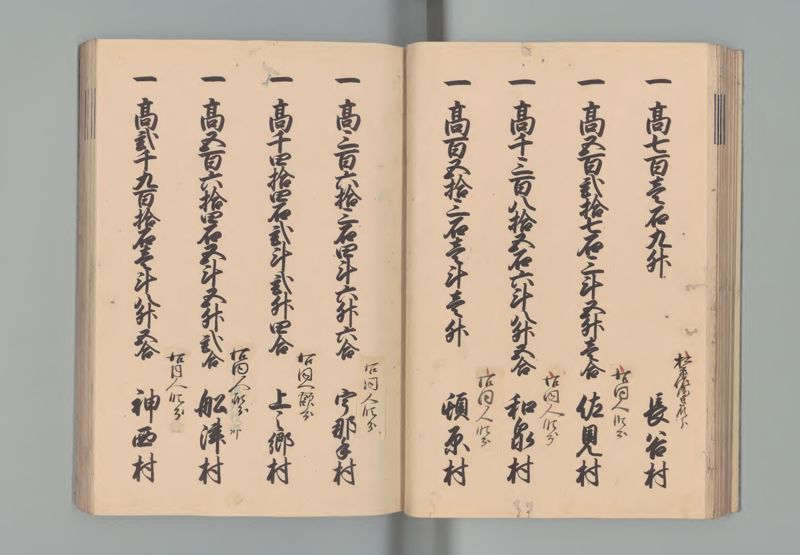 一 高七百壱石九升
長谷村
一 高五百弐拾七石三斗五升壱合
右同人知分
佐見村
一 高千三百八拾五石六斗八升五合
右同人知分
和泉村
一 高百五拾三石壱斗壱升
右同人知分
頓原村
一 高三百六拾三石四斗六升六合
右同人知分
宇那手村
一 高千四拾四石弐斗弐升四合
右同人
上之郷村
一 高五百六拾四石五斗五升弐合
右同人知分
船津村
一 高弐千九百拾石壱斗八升五合
右同人知分
神西村